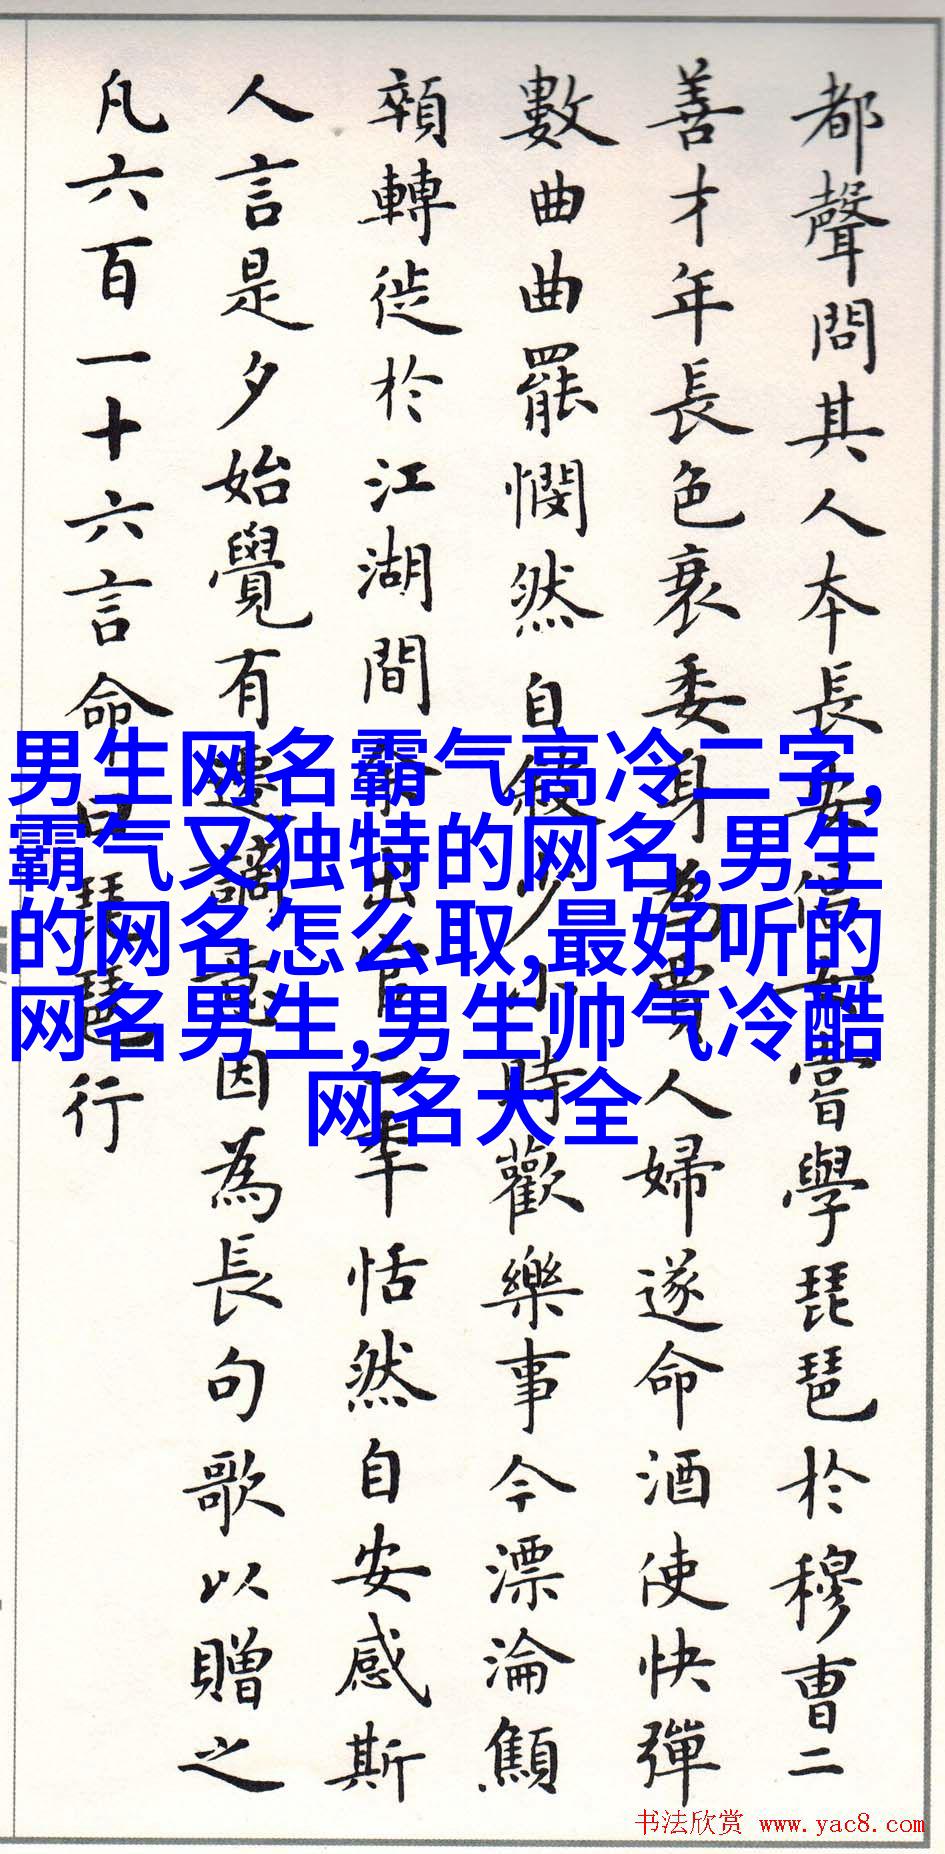 都聲問其人本長安倡女嘗學琵琶於穆曹二
善才年長色衰委身為賈人婦遂命酒使快彈
數曲曲罷憫然自叙少小時歡樂事今漂淪顦
顇轉徙於江湖間余出官二年恬然自安感斯
人言是夕始覺有遷謫意因為長句歌以贈之
凡六百一十六言命曰琵琶行
男生网名霸气高冷二字,
霸气又独特的网名,男生
的网名怎么取,最好听的
网名男生,男生帅气冷酷
网名大全
书法欣赏 www.yac8.com